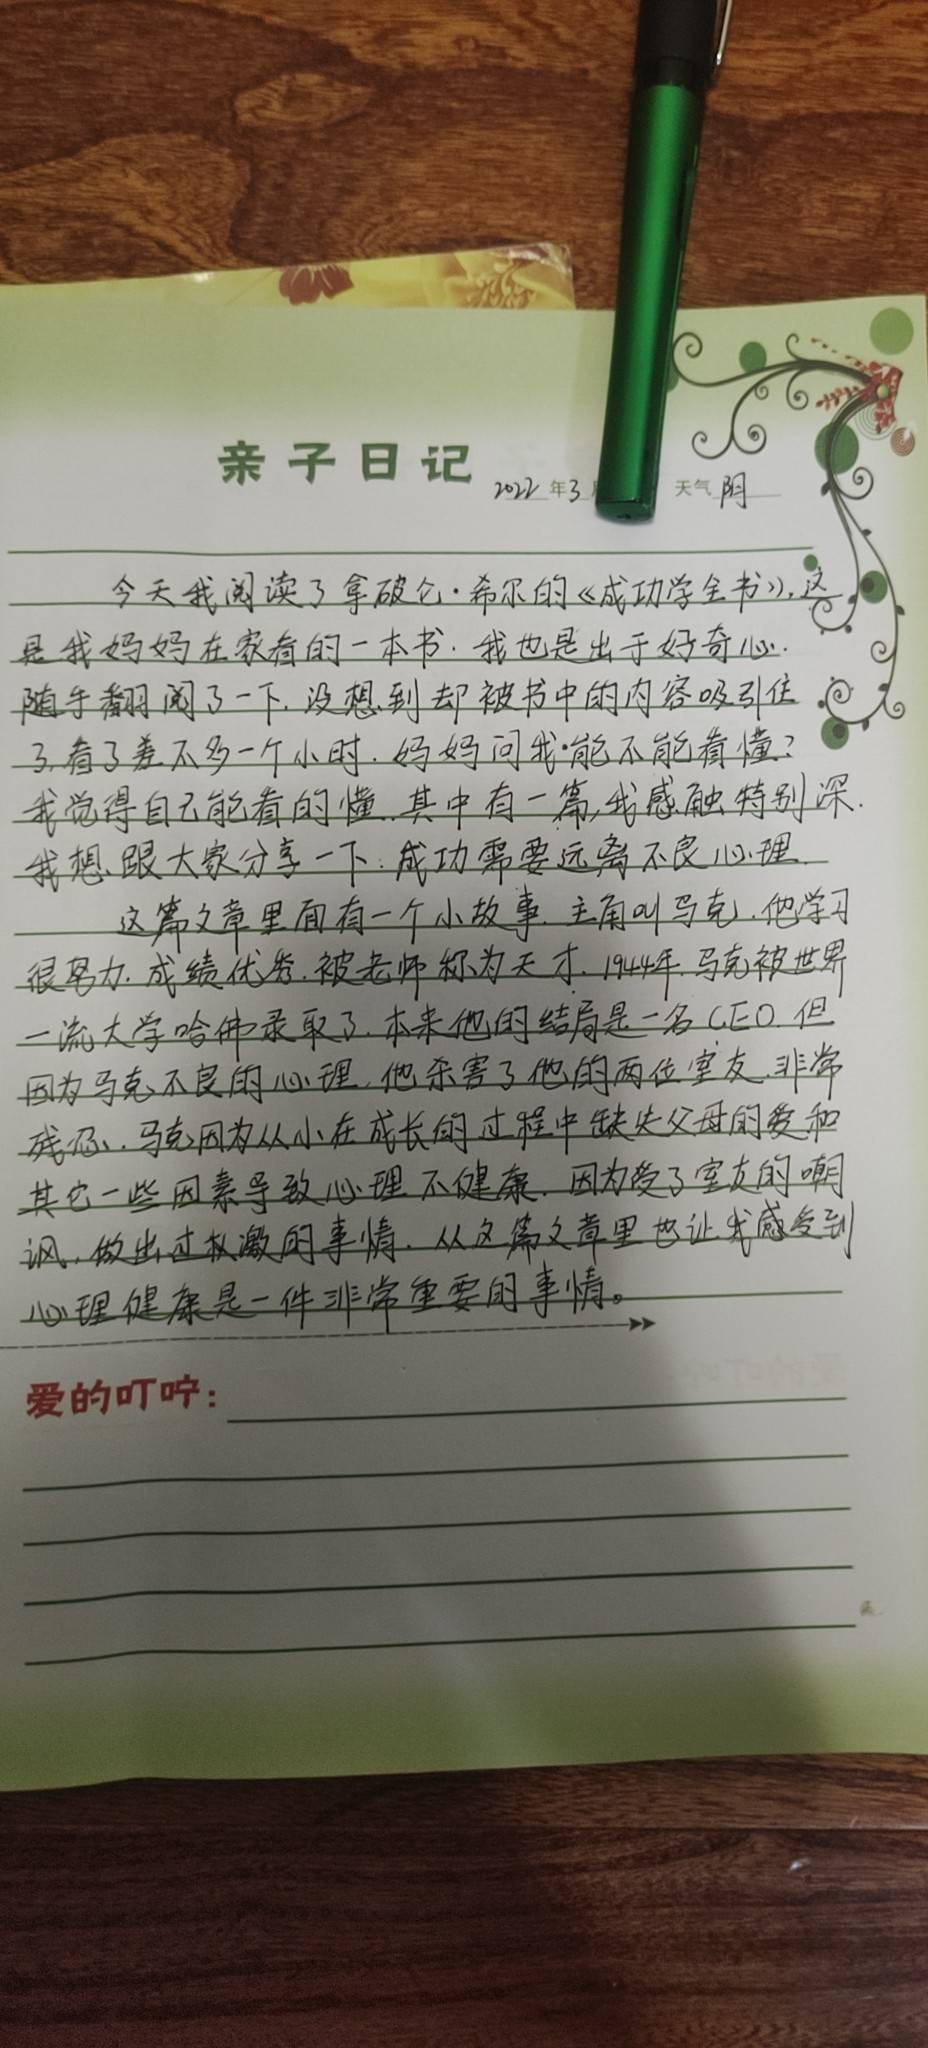 亲子日记
2022年3 天气 阴
今天我阅读了拿破仑·希尔的《成功学全书》,这
是我妈妈在家看的一本书.我也是出于好奇心.
随手翻阅了一下.没想到却被书中的内容吸引住
了.看了差不多一个小时.妈妈问我·能不能看懂?
我觉得自己能看的懂.其中有一篇,我感触特别深.
我想跟大家分享一下:成功需要远离不良心理.
这篇文章里面有一个小故事.主角叫马克.他学习
很努力.成绩优秀.被老师称为天才.1944年.马克被世界
一流大学哈佛录取了.本来他的结局是一名CEO.但
因为马克不良的心理.他杀害了他的两位室友.非常
残忍.马克因为从小在成长的过程中缺失父母的爱和
其它一些因素导致心理不健康.因为受了室友的嘲
讽.做出过激的事情.从这篇文章里也让我感受到
心理健康是一件非常重要的事情。
爱的叮咛: